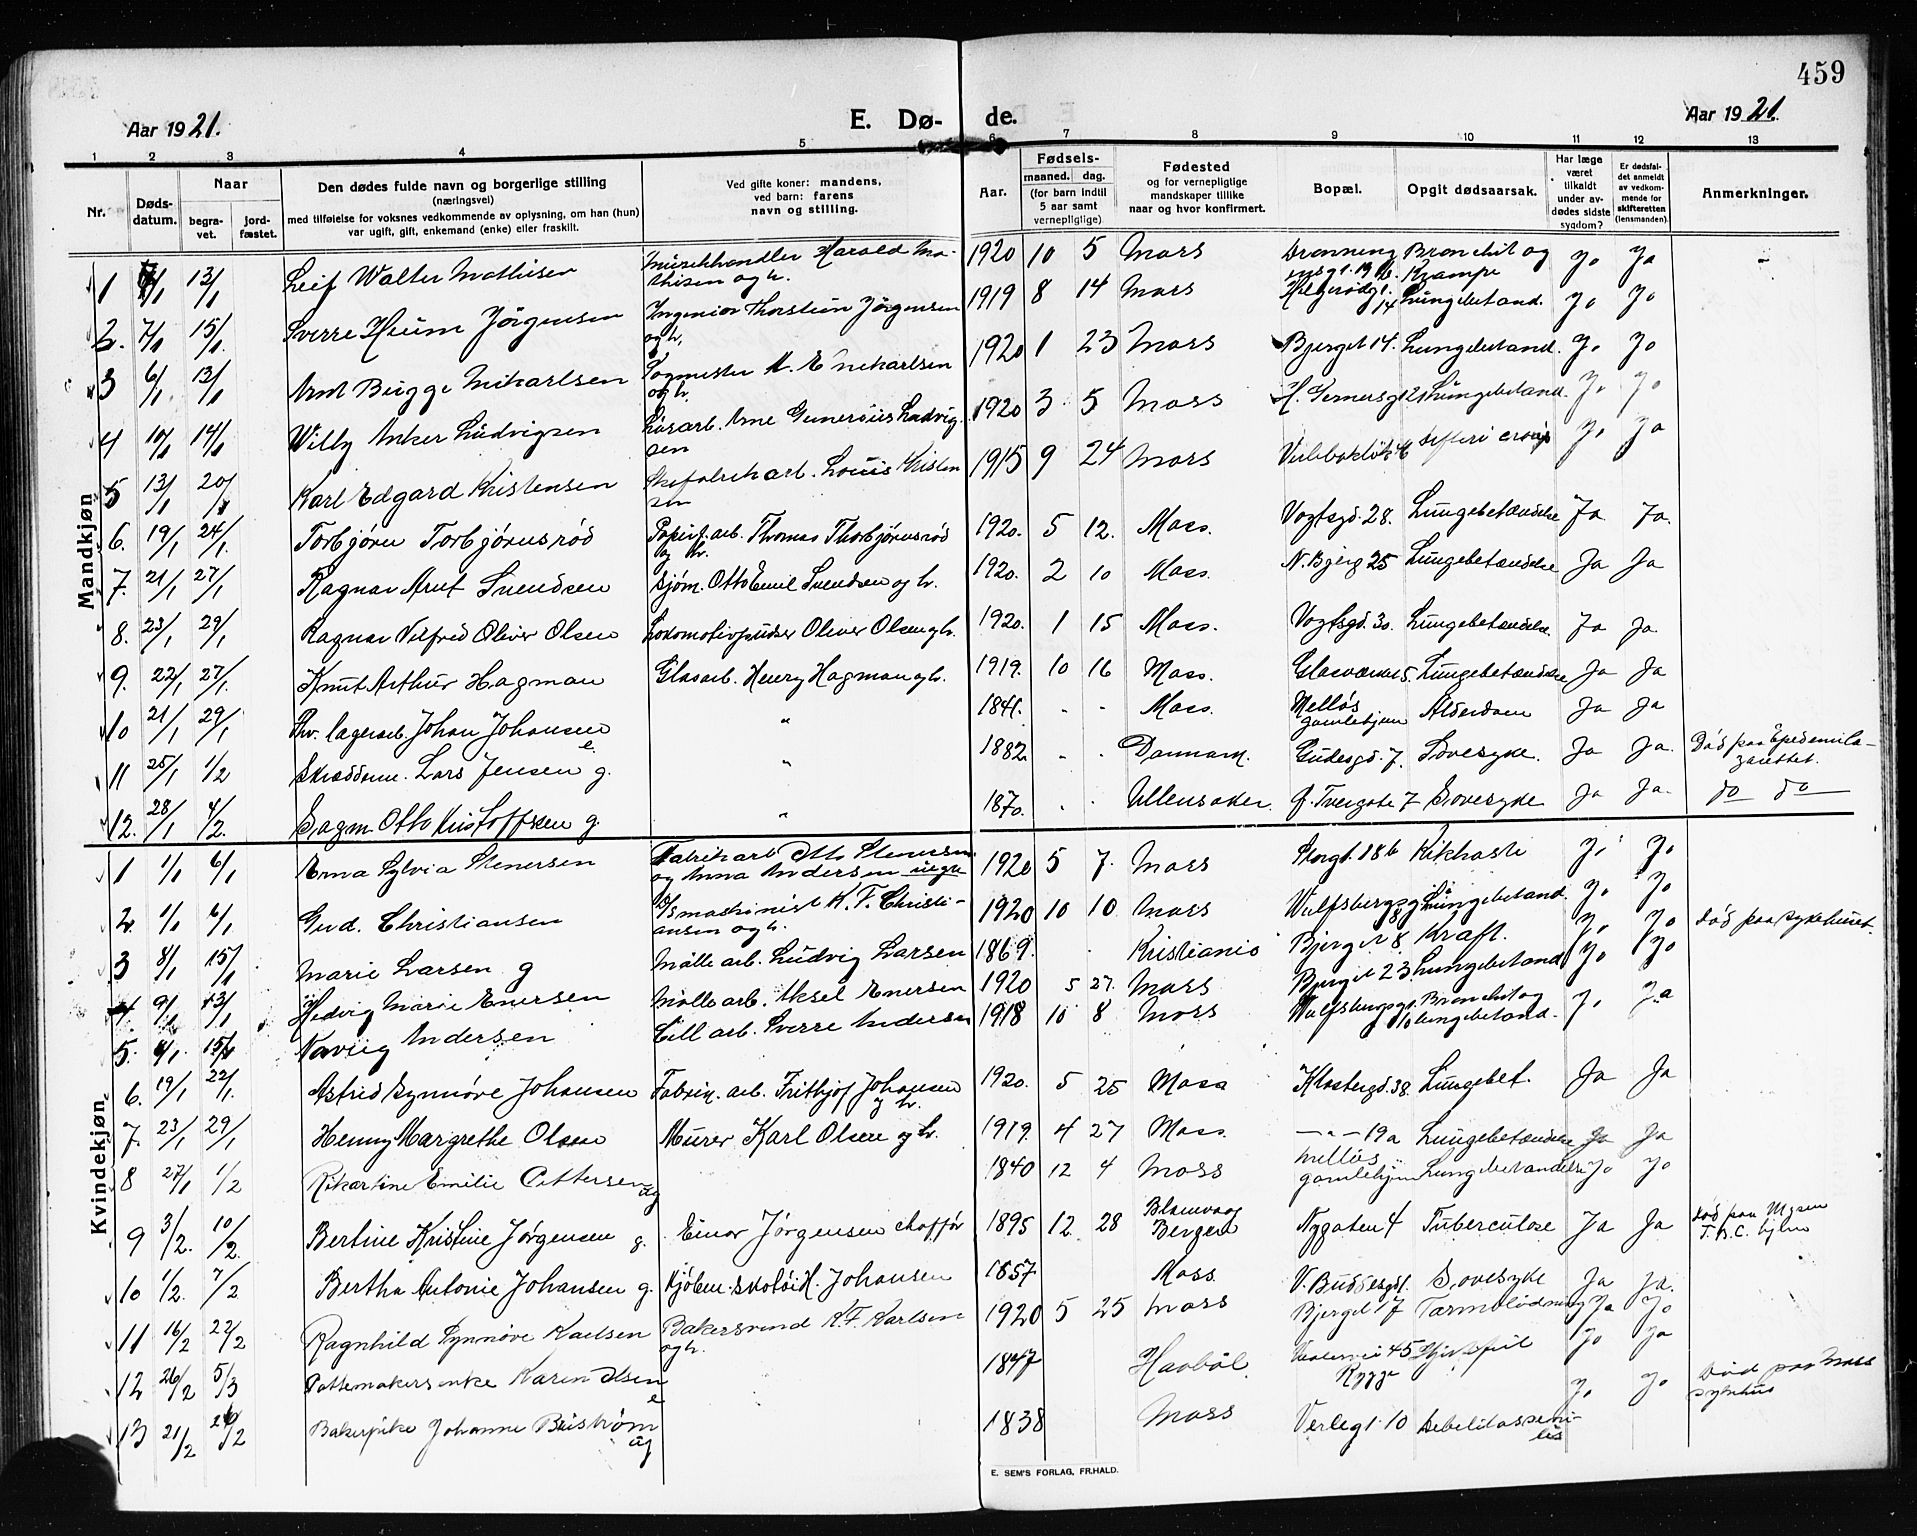 459
Aar 1921.
E. Dø- de.
Aar 1921.
1 2 3 4 5 6 7 8 9 10 11 12 13
Nr.
Døds-datum.
Naar
begra-vet.
jord-fæstet.
Den dødes fulde navn og borgerlige stilling
(næringsvei)
med tilføielse for voksnes vedkommende av oplysning, om han (hun)
var ugift, gift, enkemand (enke) eller fraskilt.
Ved gifte koner: mandens,
ved barn: farens
navn og stilling.
Aar.
Fødsels-
maaned. dag.
(for barn indtil
5 aar samt
vernepligtige)
Fødested
og for vernepligtige
mandskaper tillike
naar og hvor konfirmert.
Bopæl.
Opgit dødsaarsak.
Har læge
været
tilkaldt
under av-
dødes sidste
sygdom?
Er dødsfal-
det anmeldt
av vedkom-
mende for
skifteretten
(lensmanden).
Anmerkninger.
Mandkjøn
1 13/1 Leif Walter Mathisen Musikhandler Harald Ma-thisen og h. 1920 10 5 Moss Dronning Bronchit og Krampe Ja Ja
2. 7/1 15/1 Sverre Heum Jörgensen Ingeniør Thorstein Jörgensen og h. 1919 8 14 Moss 14 Lungebetænd. Ja Ja
3 6/1 13/1 Arnt Bugge Mikarlsen og h. 1920 1 23 Moss Bjerget 14. Lungebetænd. Ja Ja
4 10/1 14/1 Willy Anker Ludvigsen Løsarb. Arne Ludvigsen 1920 3 5 Moss Lungebetænd. Ja Ja
5 13/1 20/1 Karl Edgard Kristensen Louis Kristensen 1915 9 24 Moss Difteri croup Ja Ja
6. 19/1 24/1. Torbjörn Torbjörnsröd Papirf. arb. Thomas Thorbjörnsröd og h. 1920. 5 12. Moss. Vogtsgd. 28. Lungebetændelse Ja Ja.
7. 21/1 27/1 Ragnar Arnt Svendsen Sjöm. Otto Emil Svendsen og h. 1920. 2 10 Moss. N. Bjerg 25 Lungebetændelse Ja Ja
8. 23/1 29/1 Ragnar Vilfred Oliver Olsen Lokomotivpudser Oliver Olsen og h. 1920. 1 15 Moss. Vogtsgd. 30. Lungebetændelse. Ja Ja
9. 22/1 27/1. Knut Arthur Hagman Glasarb. Henry Hagman og h. 1919. 10 16 Moss. Glasværket 5. Lungebetændelse Ja Ja
10 21/1 29/1 Fhv. lagerarb. Johan Johansen e. " 1841. - - Moss. Melløs gamlehjem Alderdom Ja Ja
11 25/1 1/2 Skræddem. Lars Jensen g. " 1882. - - Danmark. Gudesgd. 7. Sovesyke. Ja Ja. Död paa Epidemila-zarettet.
12. 28/1 4/2. Sagm. Otto Kristoffersen g " 1870. - - Ullensaker. Tvergate 7 Sovesyke Ja Ja. do do
Kvindekjøn.
1 1/1 6/1 Erna Sylvia Stenersen Fabrikarb Otto Stenersen og Anna Andersen ugift 1920 5 7. Moss Storgt. 18b Kikhoste Ja Ja
2. 1/1 6/1 Gud. Christiansen D/S maskinist K. F. Christi-ansen og h. 1920 10 10 Moss Wulfsbergsg Lungebetænd. Ja Ja Död paa sykehuset.
3 8/1 15/1 Marie Larsen g Mölle arb. Ludvig Larsen 1869. Kristiania Bjerget 8 Kræft. Ja Ja
4 9/1 13/1 Hedvig Marie Enersen Mölle arb. Aksel Enersen 1920 5 27. Moss Bjerget 23 Lungebetænd Ja Ja
5. 15/1 Andersen arb. Sverre Andersen 1918 10 8 Moss Bronchit og lungebetænd. Ja Ja
6. 19/1 22/1. Astrid Synnöve Johansen Fabrik. arb. Frithjof Johansen og h. 1920. 5 25 Moss Klostergd. 38. Lungebet. Ja Ja
7. 23/1 29/1 Henny Margrethe Olsen Murer Karl Olsen og h. 1919. 4 27 Moss. — " — 19a Lungebetændelse Ja Ja
8 27/1 1/2 Rikartine Emilie Pettersen ug 1840 12 4 Moss Melløs gamlehjem Lungebetændelse Ja Ja
9 3/2. 10/2. Bertine Kristine Jørgensen g. Einar Jørgensen chaffør 1895 12. 28 Bergen Nygaten 4 Tuberculose Ja Ja Död paa Mysen T.B.C. hjem
10 1/2. 7/2 Bertha Antonie Johansen g. H. Johansen 1857. Moss. Sovesyke Ja Ja.
11 16/2 22/2 Ragnhild Synnöve Karlsen Bakersvend K. F. Karlsen og h. 1920 5 25 Moss Bjerget 17 Tarmblödning Ja Ja
12 26/2 5/3 Pottemakersenke Karen Olsen e 1847 45 Rygge Ja Ja
13 21/2 26/2 Bakerpike Johanne ug 1838 Moss Verlegt. 10 Debilitas seni-lis Ja Ja Död paa Moss sykehus
E. SEM'S FORLAG, FR.HALD.